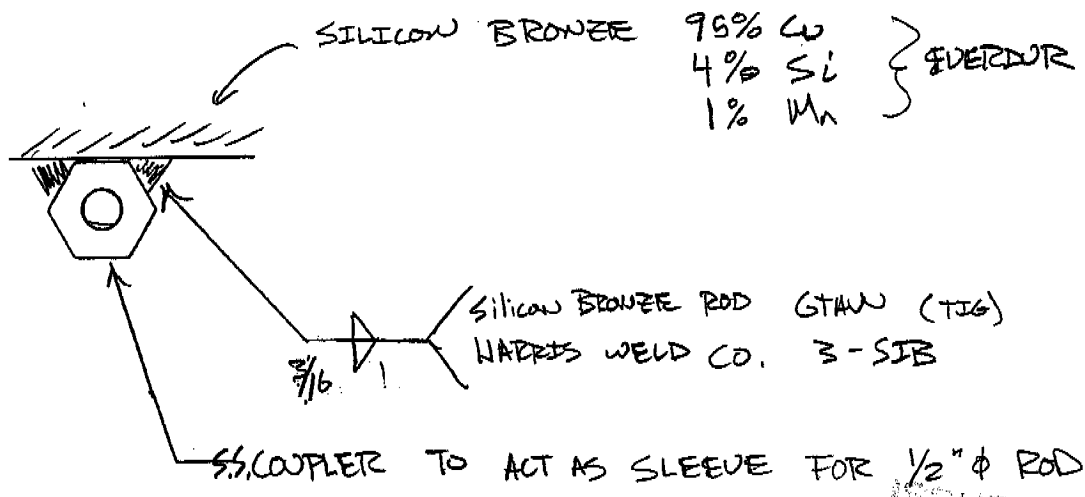 SILICON BRONZE 95% Cu
4% Si
1% Mn
EVERDUR
Silicon BRONZE ROD GTAW (TIG)
HARRIS WELD CO. 3-SIB
3/16
S.S. COUPLER TO ACT AS SLEEVE FOR 1/2" φ ROD